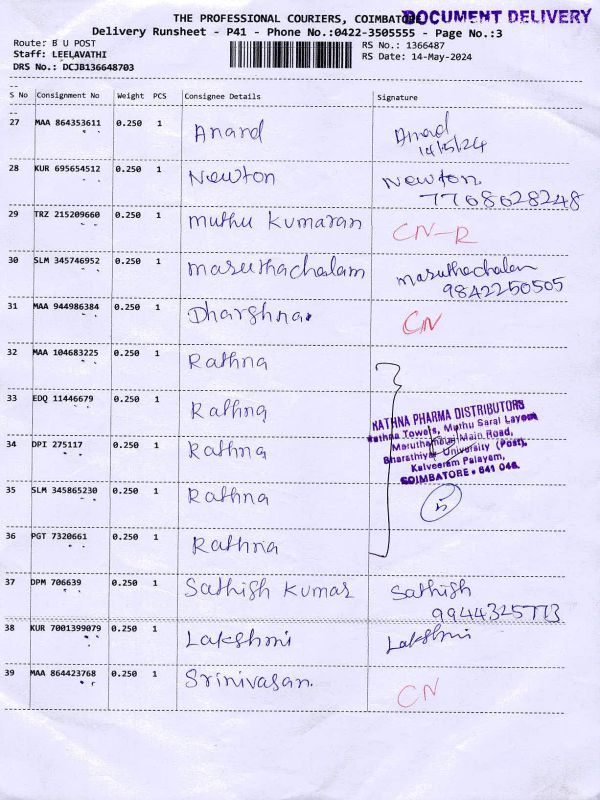 THE PROFESSIONAL COURIERS, COIMBATORE DOCUMENT DELIVERY
Delivery Runsheet - P41 - Phone No.:0422-3505555 - Page No.:3
Route: B U POST RS No.: 1366487
Staff: LEELAVATHI RS Date: 14-May-2024
DRS No.: DCJB136648703
S No Consignment No Weight PCS Consignee Details Signature
27 MAA 864353611 0.250 1 Anand Anad
14/5/24
28 KUR 695654512 0.250 1 Newton Newton
7768628248
29 TRZ 215209660 0.250 1 muthu Kumaran CN-R
30 SLM 345746952 0.250 1 maruthachalam maruthachalam
9842250505
31 MAA 944986384 0.250 1 Dharshna. CN
32 MAA 104683225 0.250 1 Rathna
33 EDQ 11446679 0.250 1 Rathna
RATHNA PHARMA DISTRIBUTORS
Rathna Towers, Muthu Saral Layout
34 DPI 275117 0.250 1 Rathna Maruthamalai Main Road,
Bharathiyar University (Post),
Kalveeram Palayam,
COIMBATORE - 641 046.
35 SLM 345865230 0.250 1 Rathna 5
36 PGT 7320661 0.250 1 Rathna
37 DPM 706639 0.250 1 Sathish Kumar Sathish
9944325773
38 KUR 7001399079 0.250 1 Lakshmi Lakshmi
39 MAA 864423768 0.250 1 Srinivasan. CN